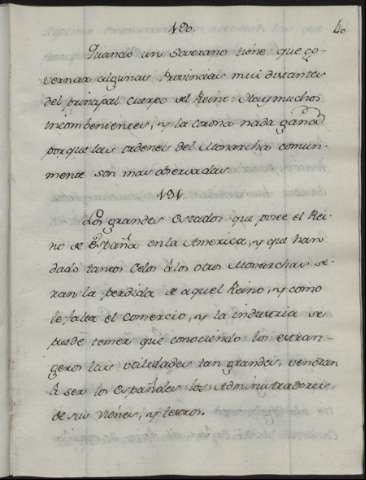 190. 40
Quando un Soverano tiene que go-
vernar algunas Provincias mui distantes
del principal cuerpo del Reino: Hay muchos
incombenientes, y la corona nada gana
porque las ordenes del Monarcha comun-
mente son mas observadas.
191.
Los grandes Estados que posee el Rei-
no de España en la America, y que han
dado tantos Celos á los otros Monarchas se-
ran la perdida de aquel Reino, y como
le falta el comercio, y la industria se
puede temer que conociendo los estran-
geros las utilidades tan grandes, vendran
á ser los Españoles los Administradores
de sus vienes, y tesoros.